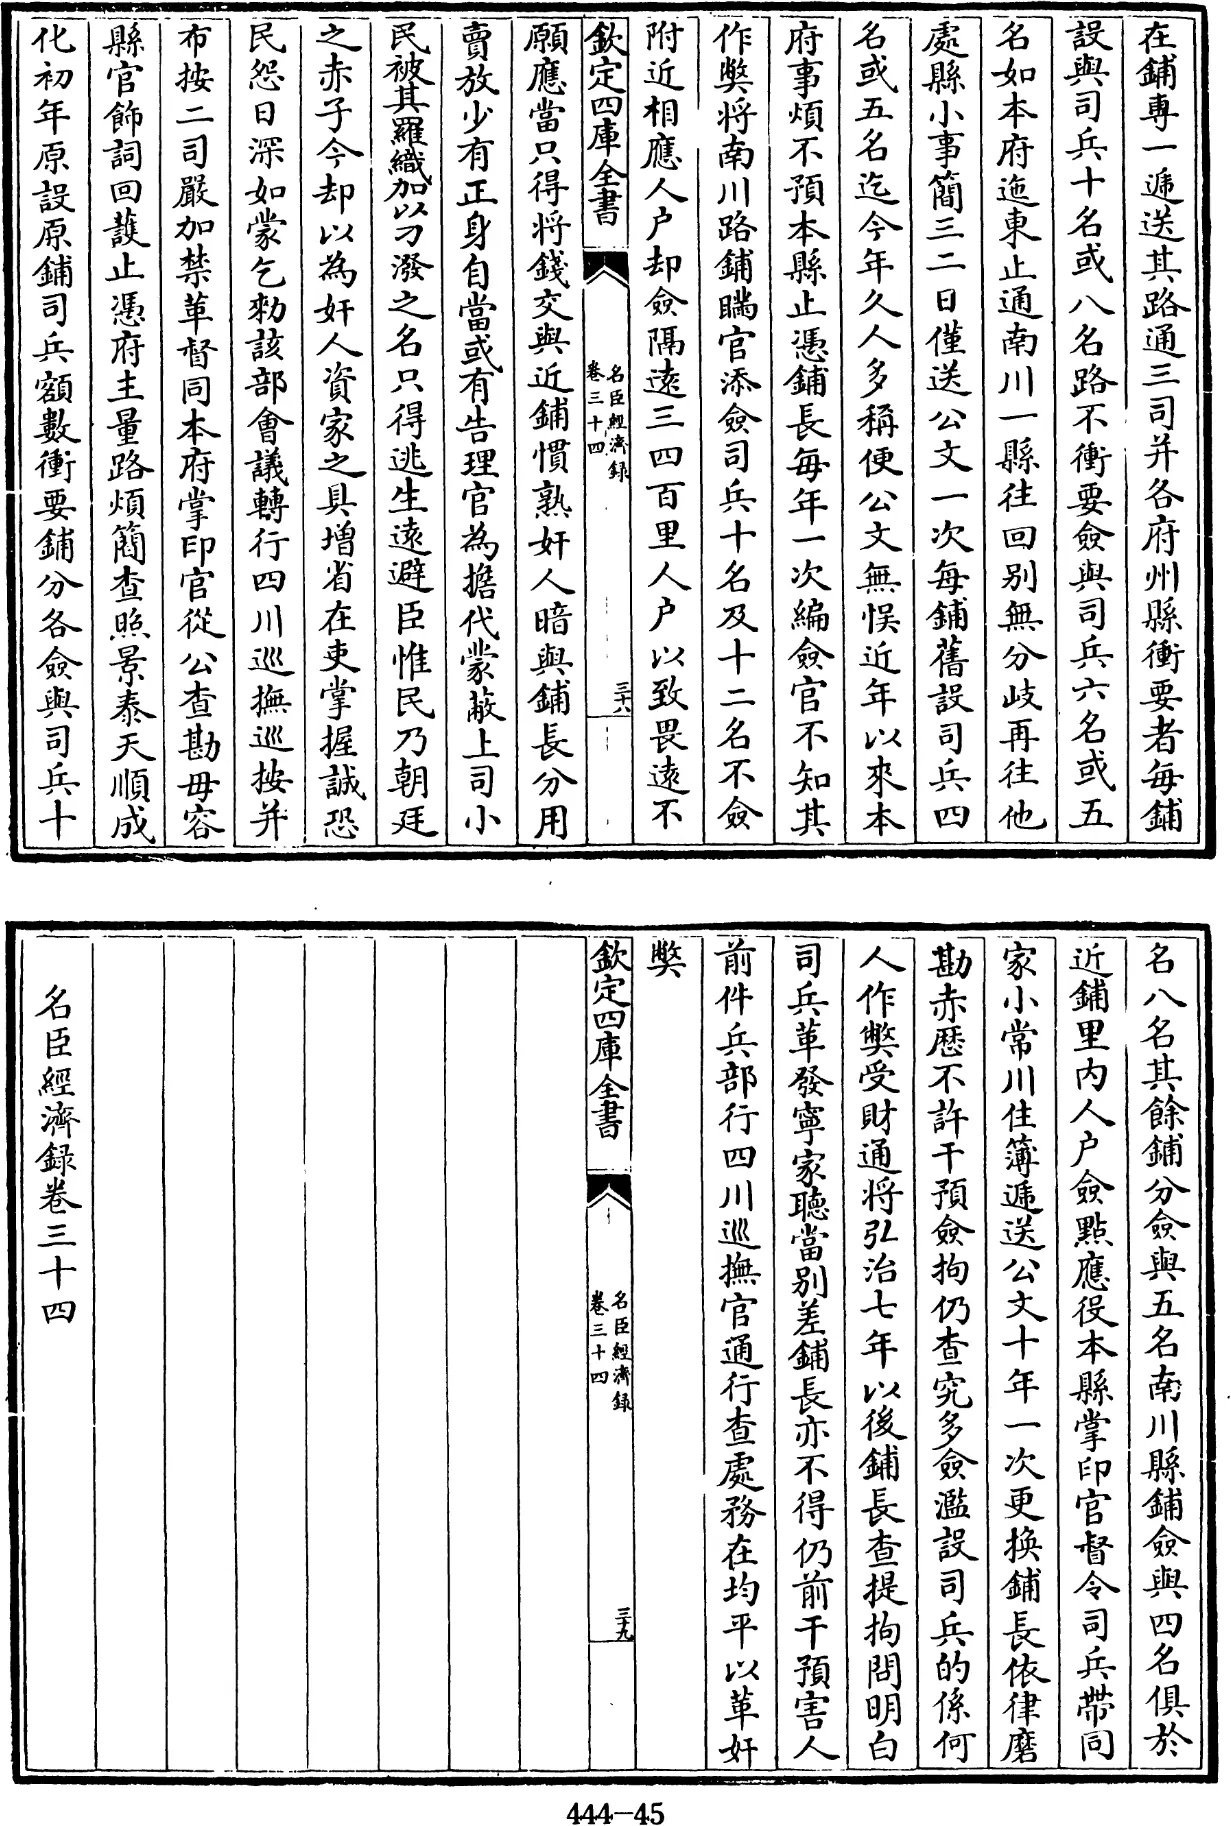 在鋪專一遞送其路通三司并各府州縣衝要者每鋪
設與司兵十名或八名路不衝要僉與司兵六名或五
名如本府迤東止通南川一縣往回别無分岐再往他
處縣小事簡三二日僅送公文一次每鋪舊設司兵四
名或五名迄今年久人多稱便公文無悞近年以來本
府事煩不預本縣止憑鋪長每年一次編僉官不知其
作弊將南川路鋪瞞官添僉司兵十名及十二名不僉
附近相應人户却僉隔遠三四百里人户以致畏遠不
欽定四庫全書
名臣經濟録
卷三十四
三十八
願應當只得將錢交與近鋪慣熟奸人暗與鋪長分用
賣放少有正身自當或有告理官為擔代蒙蔽上司小
民被其羅織加以刁潑之名只得逃生遠避臣惟民乃朝廷
之赤子今却以為奸人資家之具增省在吏掌握誠恐
民怨日深如蒙乞勑該部會議轉行四川巡撫巡按并
布按二司嚴加禁革督同本府掌印官從公查勘毋容
縣官飾詞回護止憑府主量路煩簡查照景泰天順成
化初年原設原鋪司兵額數衝要鋪分各僉與司兵十
名八名其餘鋪分僉與五名南川縣鋪僉與四名俱於
近鋪里内人户僉點應役本縣掌印官督令司兵帶同
家小常川住簿遞送公文十年一次更換鋪長依律磨
勘赤歷不許干預僉拘仍查究多僉濫設司兵的係何
人作弊受財通將弘治七年以後鋪長查提拘問明白
司兵革發寧家聽當别差鋪長亦不得仍前干預害人
前件兵部行四川巡撫官通行查處務在均平以革奸
弊
欽定四庫全書
名臣經濟録
卷三十四
三十九
名臣經濟録卷三十四
444-45